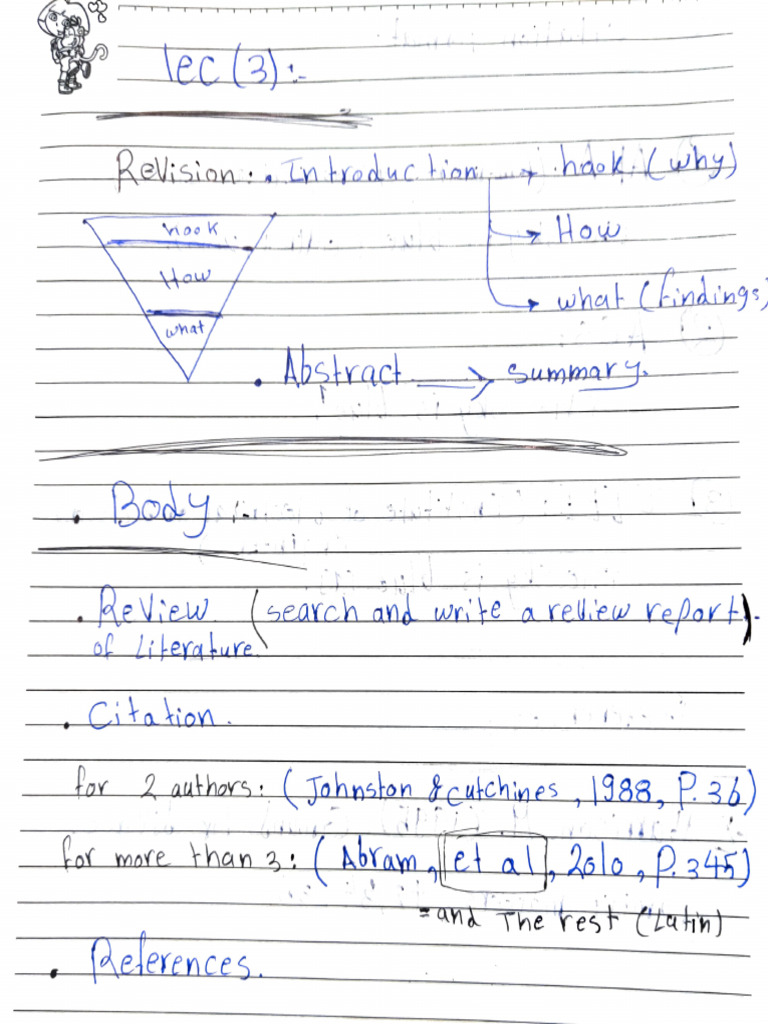 lec (3) :-
Revision: • Introduction → hook (why)
→ How
→ what (findings)
hook
How
what
• Abstract → summary.
• Body :-
• Review (search and write a review report).
of Literature
• Citation.
for 2 authors: (Johnston & Cutchines, 1988, P. 36)
for more than 3: (Abram, et al, 2010, P. 345)
= and The rest (Latin)
• References.